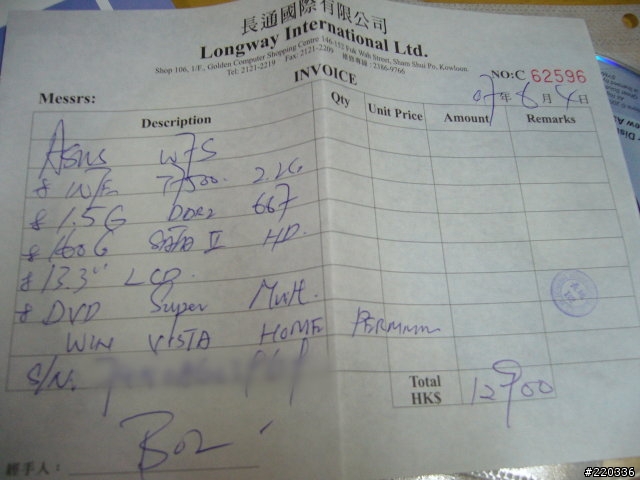 長通國際有限公司
Longway International Ltd.
Shop 106, 1/F., Golden Computer Shopping Centre 146-152 Fuk Wah Street, Sham Shui Po, Kowloon.
Tel: 2121-2219 Fax: 2121-2269 維修專線:2186-9766
INVOICE
NO:C 62596
Messrs:
07年6月4日
Description Qty Unit Price Amount Remarks
ASUS W7S
T7500. 2.2G
1.5G DDR2 667
160G SATA II HD.
13.3" LCD.
DVD Super Multi.
WIN VISTA HOME
S/N.
Total HK$ 12900
經手人:
#220336